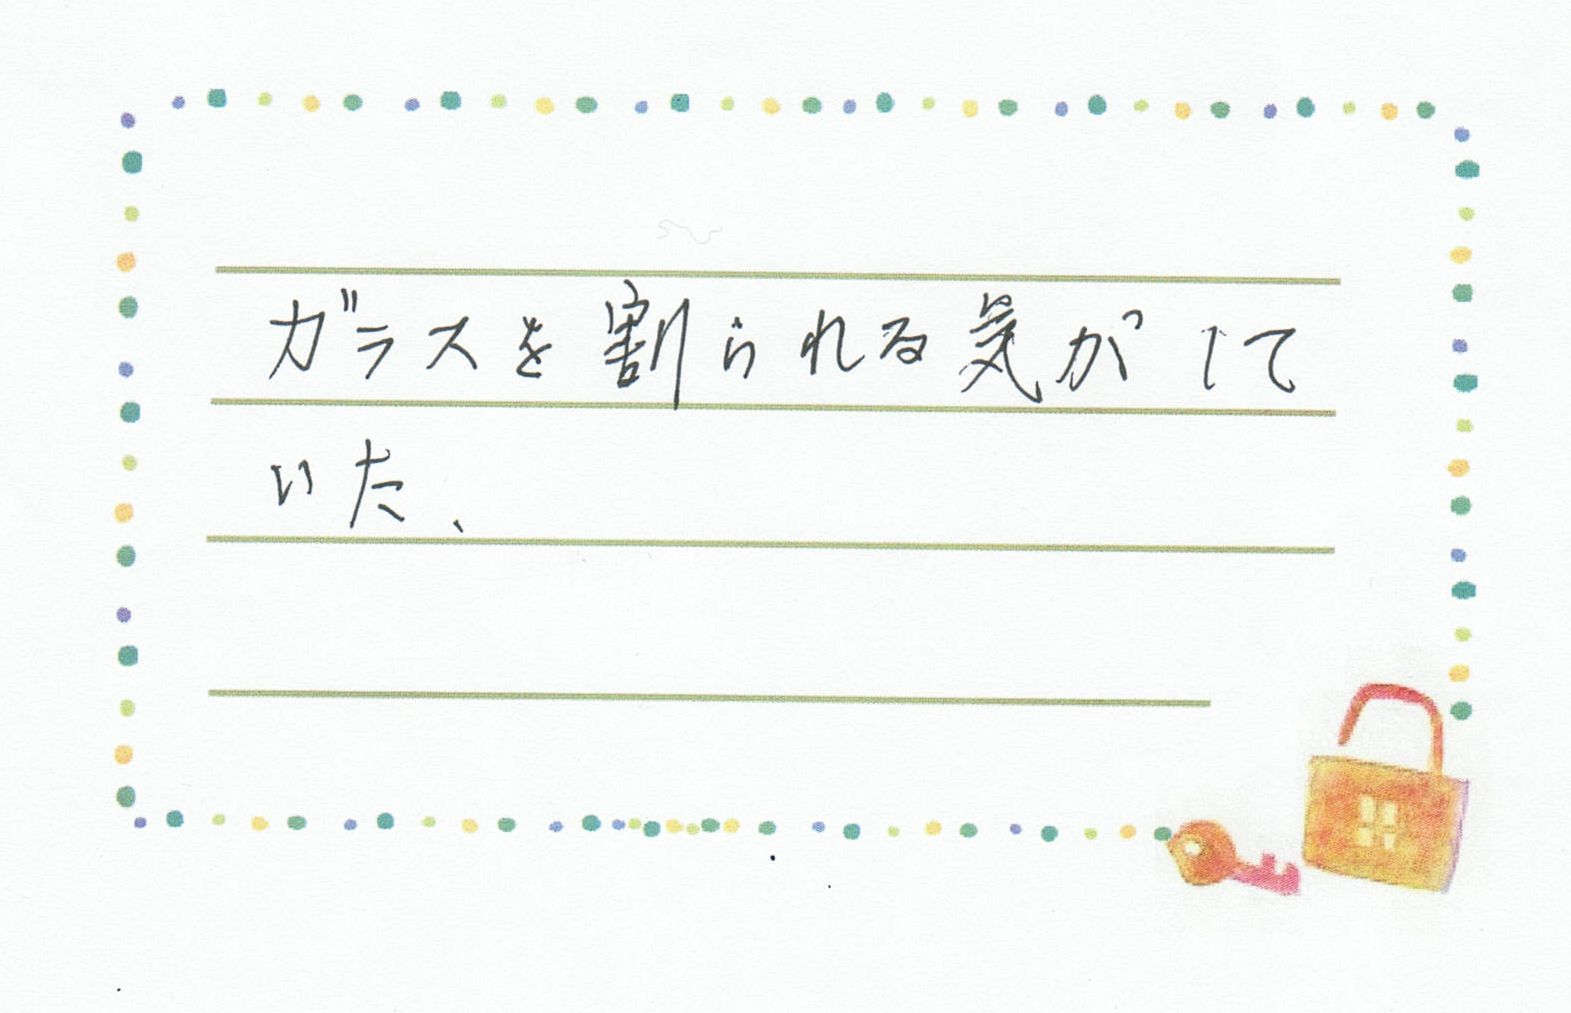 ガラスを割られる気がして
いた、